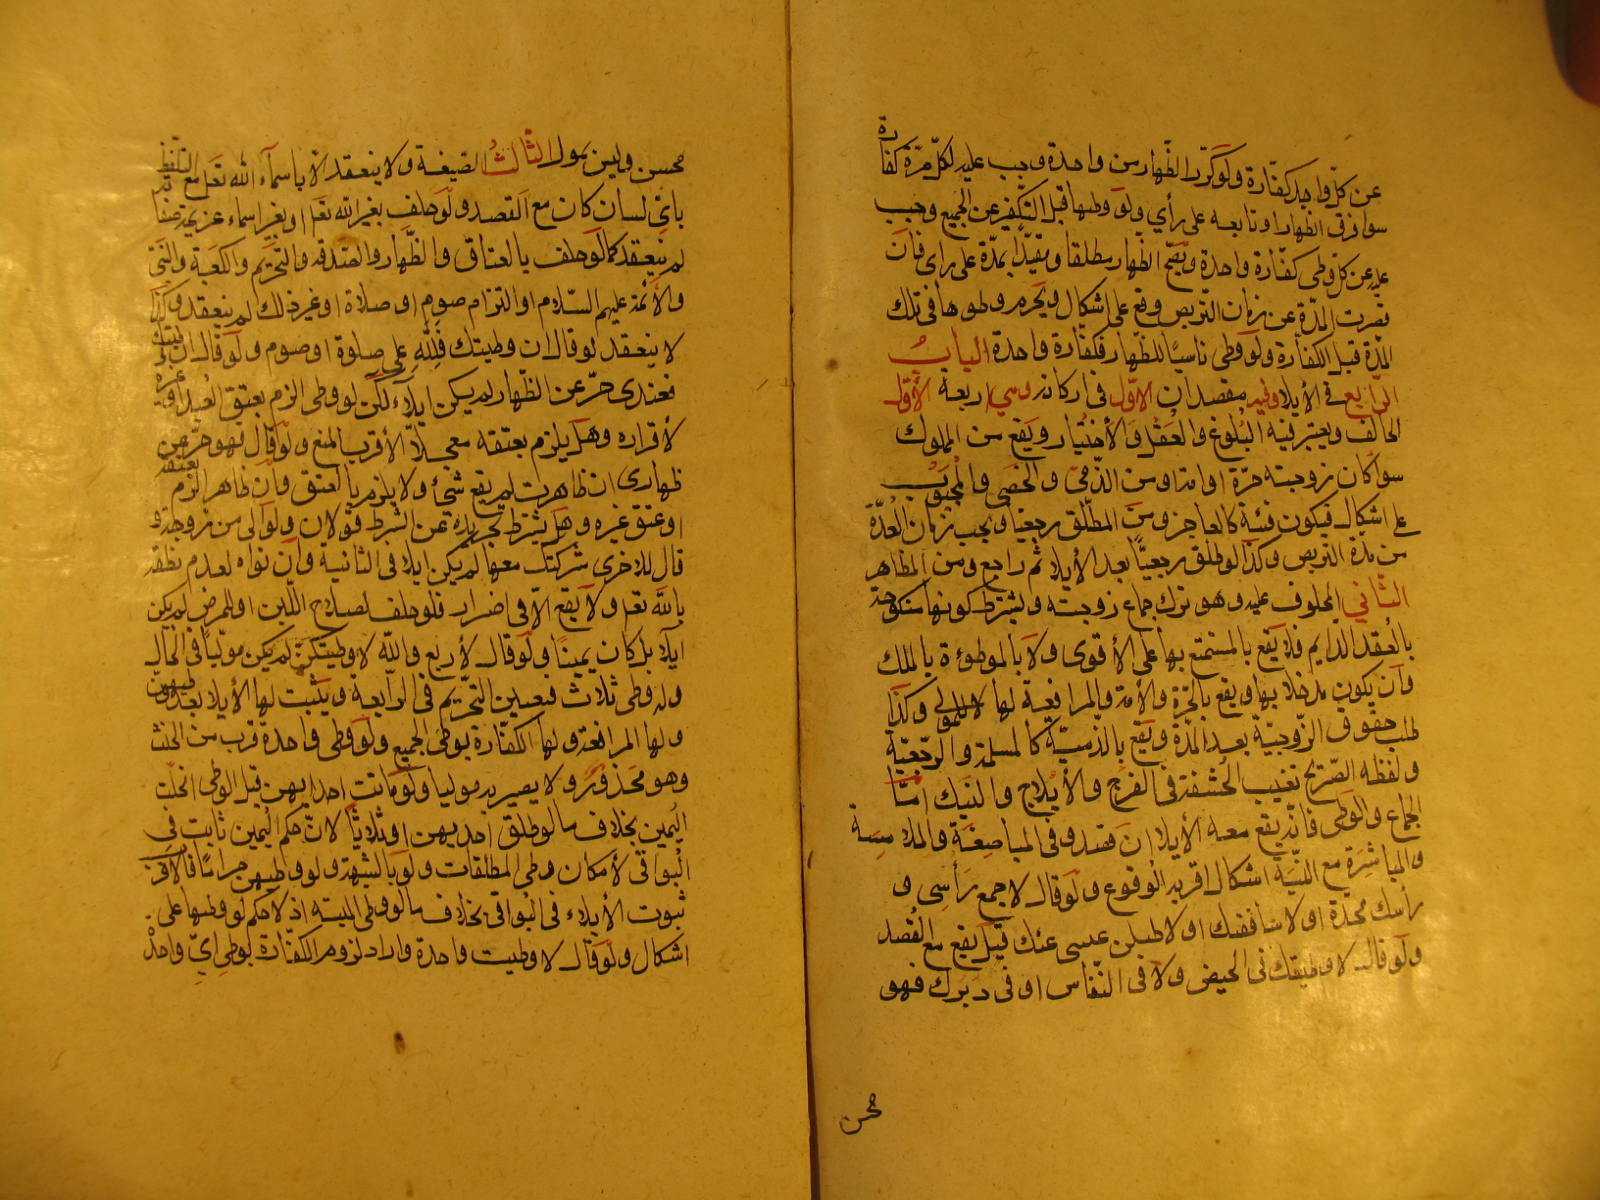 عن كل واحد كفارة ولو كرر الظهار من واحدة وجب عليه لكل مرة كفارة
سوا فرق الظهار او تابعه على رأي ولو وطيها قبل التكفير عن الجميع وجب
عليه عن كل وطى كفارة واحدة ويصح الظهار مطلقا ومقيدا بمدة على راى فان
قصرت المدة عن زمان التربص وقع على اشكال ويحرم وطوها فى تلك
المدة قبل الكفارة ولو وطى ناسيا للظهار فكفارة واحدة الباب
الرابع فى الايلا وفيه مقصدان الاول فى اركانه وهي اربعة الأول
الحالف ويعتبر فيه البلوغ والعقل والأختيار ويقع من المملوك
سوا كان زوجته حرة او امة ومن الذمى والخصى والمجبوب
على اشكال فيكون فئته كالعاجز ومن المطلق رجعيا ويحتسب زمان العدة
من مدة التربص وكذا لو طلق رجعيا بعد الأيلا ثم راجع ومن المظاهر
الثاني المحلوف عليه وهو ترك جماع زوجته ويشترط كونها منكوحة
بالعقد الدايم فلا يقع بالمستمتع بها على الأقوى ولا بالموطوءة بالملك
وان يكون مدخولا بها ويقع بالحرة والأمة والمرافعة لها لا للمولى وكذا
طلب حقوق الزوجية بعد المدة ويقع بالذمية كالمسلمة والرجعية
ولفظه الصريح تغييب الحشفة فى الفرج والأيلاج والنيك امتا
الجماع والوطى فانه يقع معه الأيلا ان قصد وفى المباضعة والملامسة
والمباشرة مع النية اشكال اقربه الوقوع ولو قال لا جمع رأسى و
رأسك مخدة او لا ساقفتك او لا طيلن غيبى عنك قيل يقع مع القصد
ولو قال لا وطيتك فى الحيض ولا فى النفاس او فى دبرك فهو
محسن
محسن وليس بمول الثالث الصيغة ولا ينعقد الا باسماء الله تعالى مع التلفظ
باى لسان كان مع القصد ولو حلف بغير الله تعا او بغير اسماء
لم ينعقد كما لو حلف بالعتاق والظهار والصدقة والتحريم والكعبة والنبى
والأئمة عليهم السلام او التزام صوم او صلاة او غير ذلك لم ينعقد وكذا
لا ينعقد لو قال ان وطيتك فلله على صلوة او صوم ولو قال ان وطيتك
فعبدى حر عن الظهار لم يكن ايلاء لكن لو وطى الزم بعتق العبد
لأقراره وهل يلزم بعتقه معجلا الأقرب المنع ولو قال فهو حر عن
ظهارى ان ظاهرت لم يقع شيئ ولا يلزم بالعتق وان ظاهر الزم بعتقه
او عتق غيره وهل يشترط تجريده عن الشرط قولان ولو الى من زوجة و
قال للاخرى شركتك معها لم يكن ايلا فى الثانية وان نواه لعدم نطقه
بالله تعا ولا يقع الا فى اضرار فلو حلف لصلاح اللبن او للمرض لم يكن
ايلا بل كان يمينا ولو قال لأربع والله لا وطيتكن لم يكن موليا فى الحال
وله وطى ثلاث فيعين التحريم فى الرابعة ويثبت لها الأيلا بعد وطيهن
ولها المرافعة ولها الكفارة بوطى الجميع ولو وطى واحدة قرب من الحنث
وهو محذور ولا يصير به موليا ولو ماتت احداهن قبل الوطى انحلت
اليمين بخلاف ما لو طلق احديهن او ثلاثا لان حكم اليمين ثابت فى
البواقى لأمكان وطى المطلقات ولو بالشبهة ولو وطيهن حراما فالاقرب
ثبوت الأيلاء فى البواقى بخلاف ما لو وطى الميتة اذ لا حكم لوطيها على
اشكال ولو قال لا وطيت واحدة واراد لزوم الكفارة بوطى اي واحدة